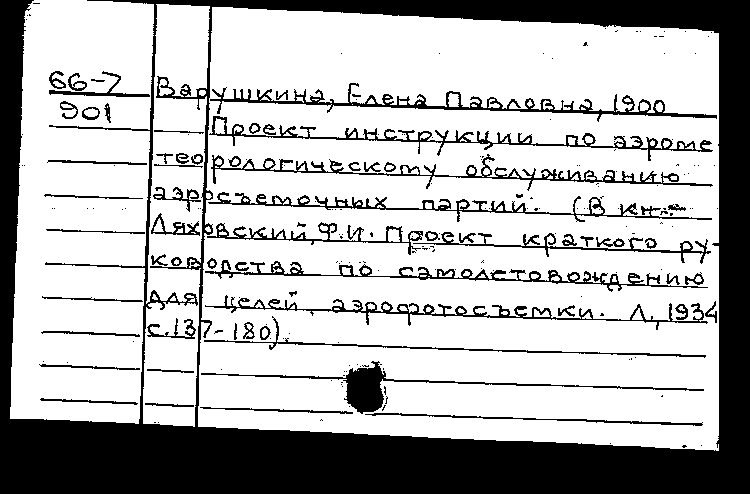 66-7 Варушкина, Елена Павловна, 1900
901 Проект инструкции по аэроме
теорологическому обслуживанию
аэросъемочных партий. (В кн.:
Ляховский, Ф.И. Проект краткого ру-
ководства по самолетовождению
для целей аэрофотосъемки. Л., 1934
с.137-180).